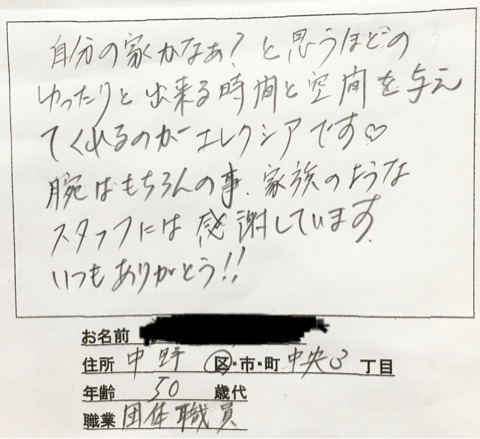 自分の家かなぁ?と思うほどの
ゆったりと出来る時間と空間を与え
てくれるのがエレクシアです♡
腕はもちろんの事、家族のような
スタッフには感謝しています
いつもありがとう!!
お名前
住所 中野 区・市・町 中央3 丁目
年齢 50 歳代
職業 団体職員